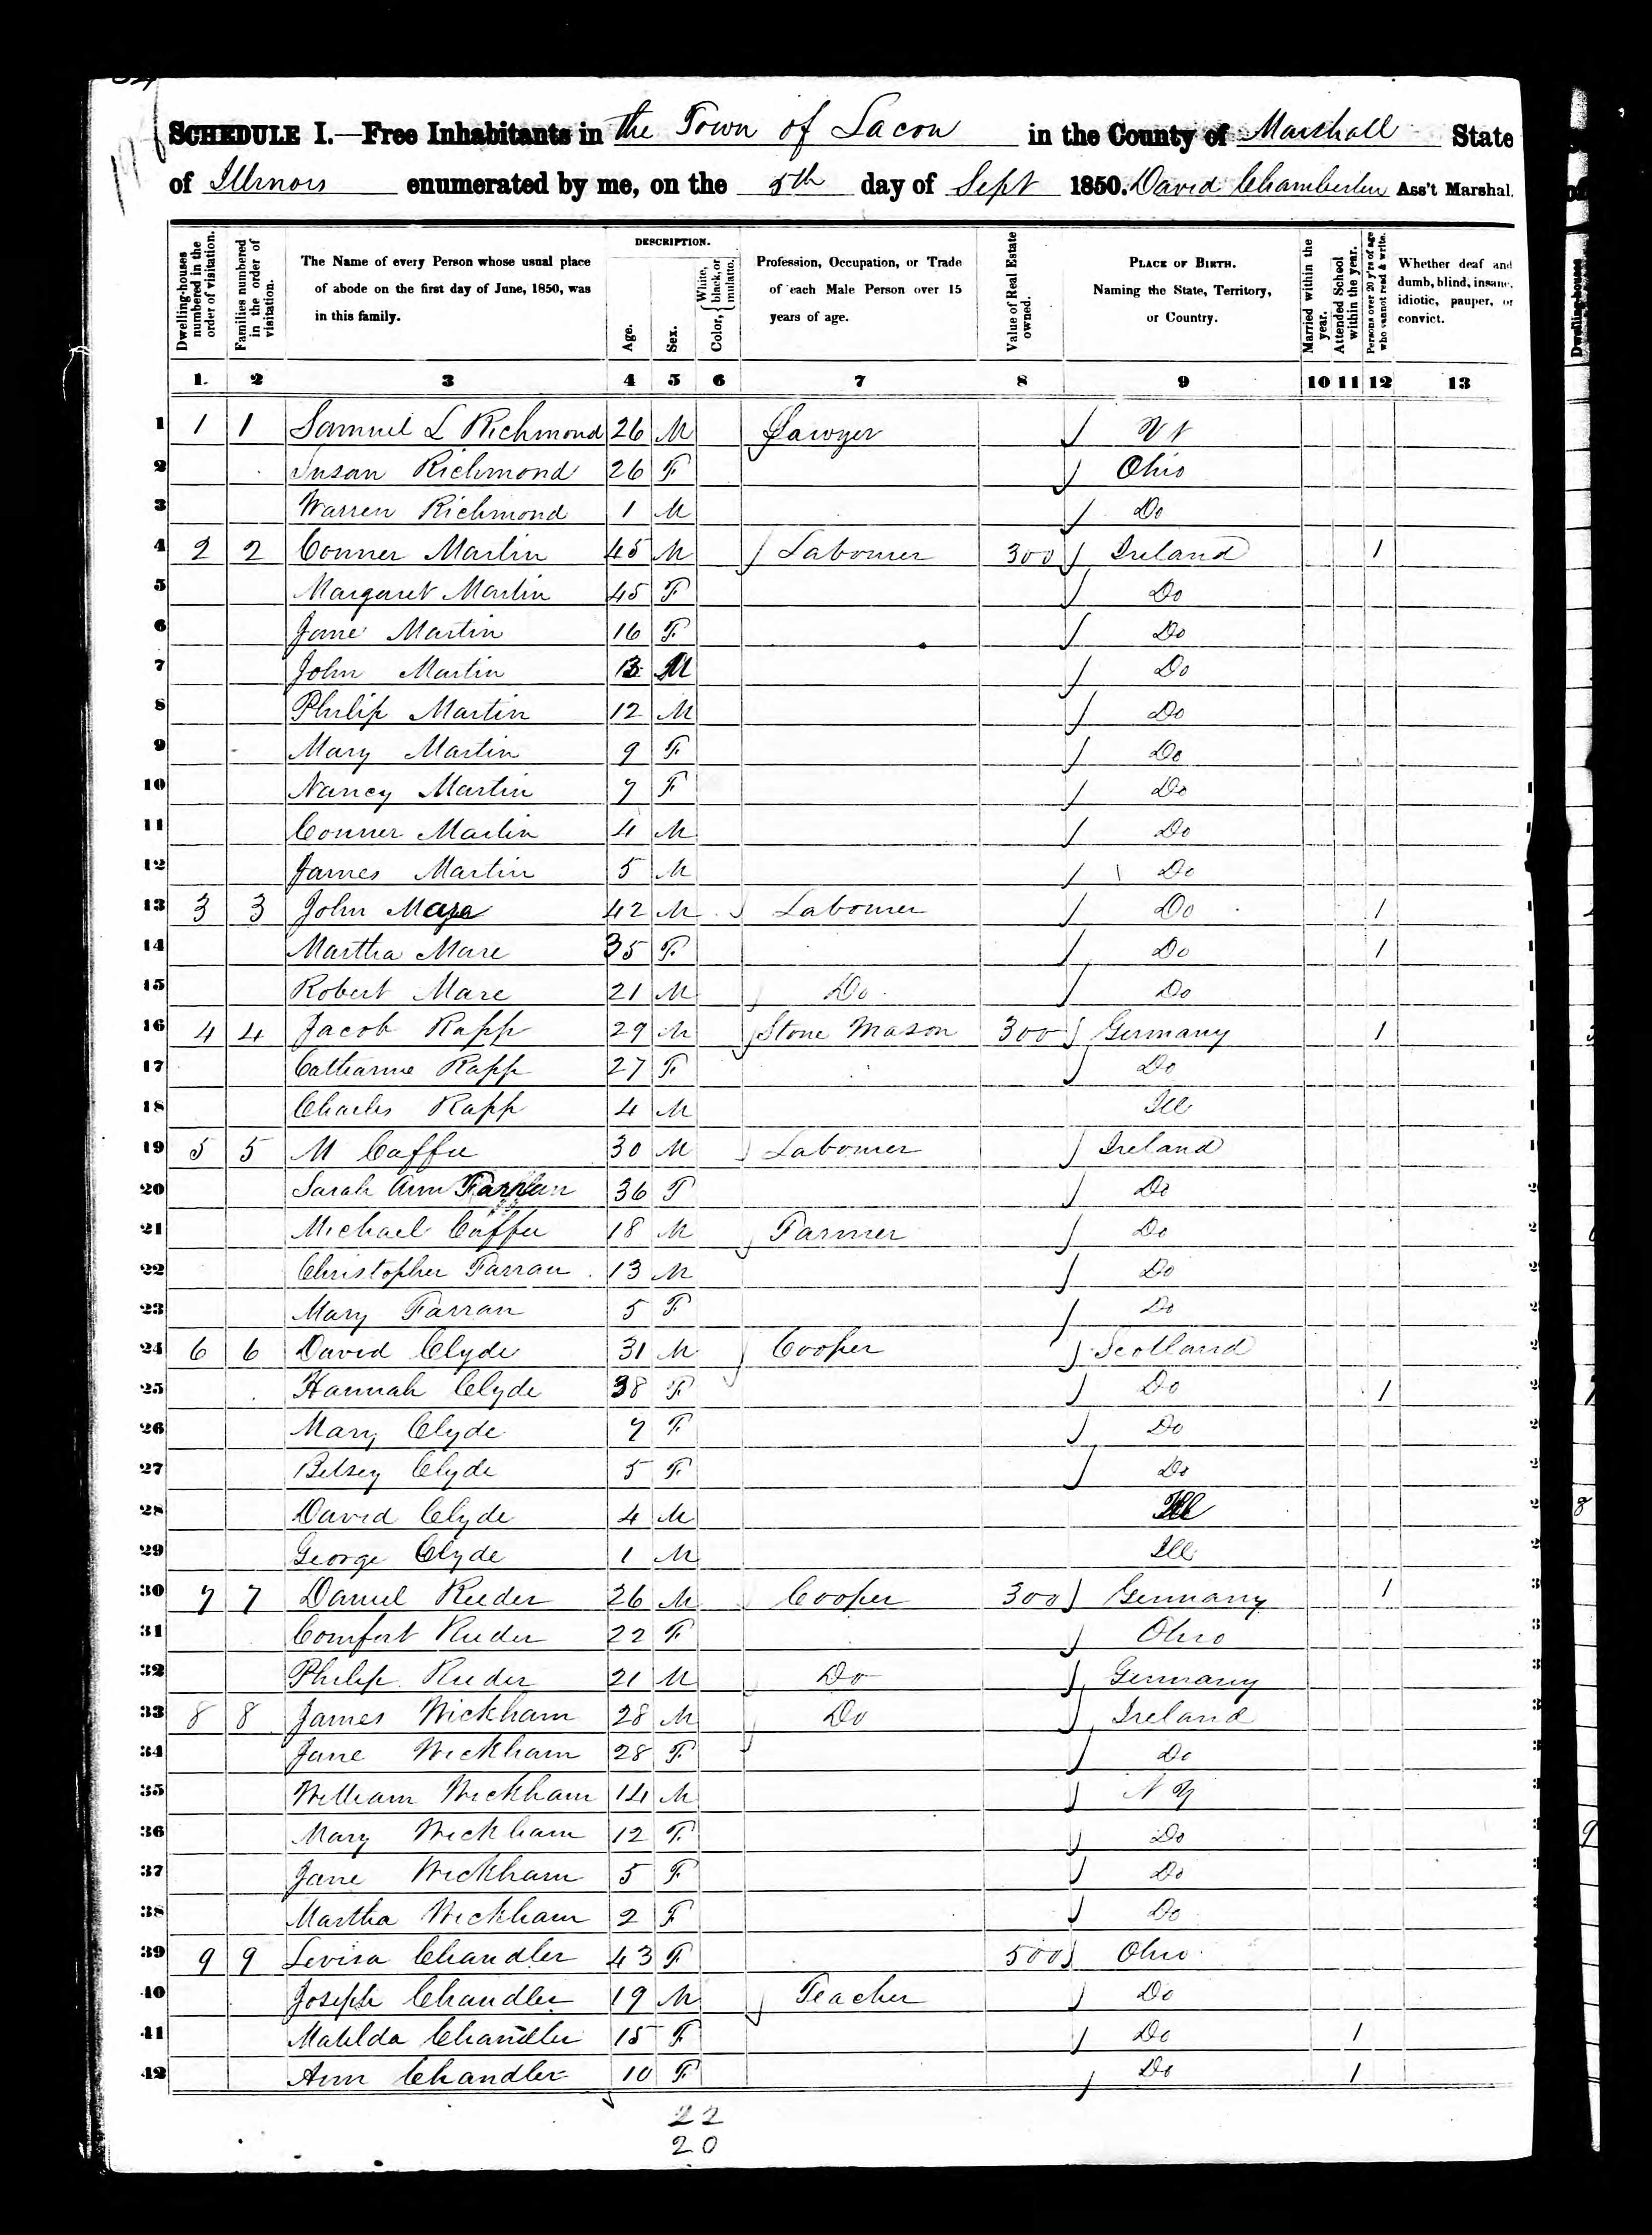 SCHEDULE I.—Free Inhabitants in the Town of Lacon in the County of Marshall State
of Illinois enumerated by me, on the 5th day of Sept 1850. David Chamberlin Ass't Marshal.
Dwelling-houses numbered in the order of visitation.
Families numbered in the order of visitation.
The Name of every Person whose usual place of abode on the first day of June, 1850, was in this family.
DESCRIPTION.
Age.
Sex.
Color, { White, black, or mulatto.
Profession, Occupation, or Trade of each Male Person over 15 years of age.
Value of Real Estate owned.
PLACE OF BIRTH. Naming the State, Territory, or Country.
Married within the year.
Attended School within the year.
Persons over 20 y'rs of age who cannot read & write.
Whether deaf and dumb, blind, insane, idiotic, pauper, or convict.
1. 2 3 4 5 6 7 8 9 10 11 12 13
1 1 1 Samuel L Richmond 26 M Lawyer
2 Susan Richmond 26 F Ohio
3 Warren Richmond 1 M Do
4 2 2 Conner Martin 45 M Labourer 300 Ireland 1
5 Margaret Martin 45 F Do
6 Jane Martin 16 F Do
7 John Martin 13 M Do
8 Philip Martin 12 M Do
9 Mary Martin 9 F Do
10 Nancy Martin 7 F Do
11 Conner Martin 4 M Do
12 James Martin 5 M Do
13 3 3 John 42 M Labourer Do 1
14 Martha Mare 35 F Do 1
15 Robert Mare 21 M Do Do
16 4 4 Jacob Rapp 29 M Stone Mason 300 Germany 1
17 Catharine Rapp 27 F Do
18 Charles Rapp 4 M Ill
19 5 5 M Caffee 30 M Labourer Ireland
20 Sarah Ann 36 F Do
21 Michael Caffee 18 M Farmer Do
22 Christopher Farran 13 M Do
23 Mary Farran 5 F Do
24 6 6 David Clyde 31 M Cooper Scotland
25 Hannah Clyde 38 F Do 1
26 Mary Clyde 7 F Do
27 Betsey Clyde 5 F Do
28 David Clyde 4 M Ill
29 George Clyde 1 M Ill
30 7 7 Daniel Reeder 26 M Cooper 300 Germany 1
31 Comfort Reeder 22 F Ohio
32 Philip Reeder 21 M Do Germany
33 8 8 James Wickham 28 M Do Ireland
34 Jane Wickham 28 F Do
35 William Wickham 14 M N Y
36 Mary Wickham 12 F Do
37 Jane Wickham 5 F Do
38 Martha Wickham 2 F Do
39 9 9 Levisa Chandler 43 F 500 Ohio
40 Joseph Chandler 19 M Teacher Do
41 Matilda Chandler 15 F Do 1
42 Ann Chandler 10 F Do 1
22
20